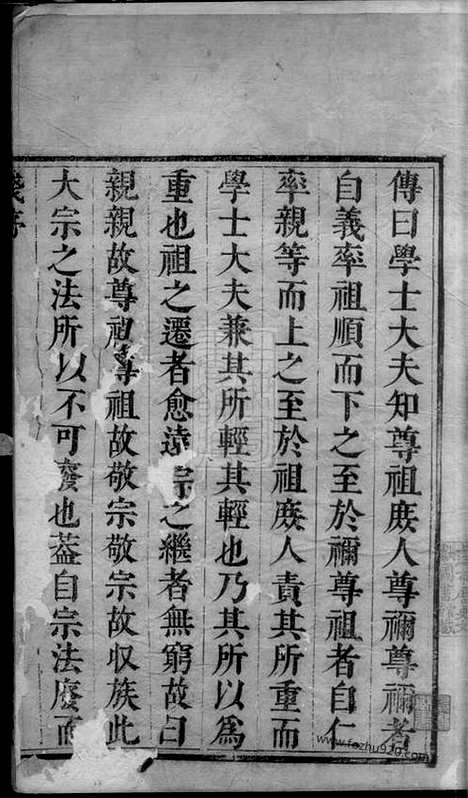 傳曰學士大夫知尊祖庻人尊禰尊禰者
自義率祖順而下之至於禰尊祖者自仁
率親等而上之至於祖庻人責其所重而
學士大夫兼其所輕其輕也乃其所以為
重也祖之遷者愈遠宗之繼者無窮故曰
親親故尊祖尊祖故敬宗敬宗故収族此
大宗之法所以不可廢也葢自宗法廢而
www.fozhu920.com